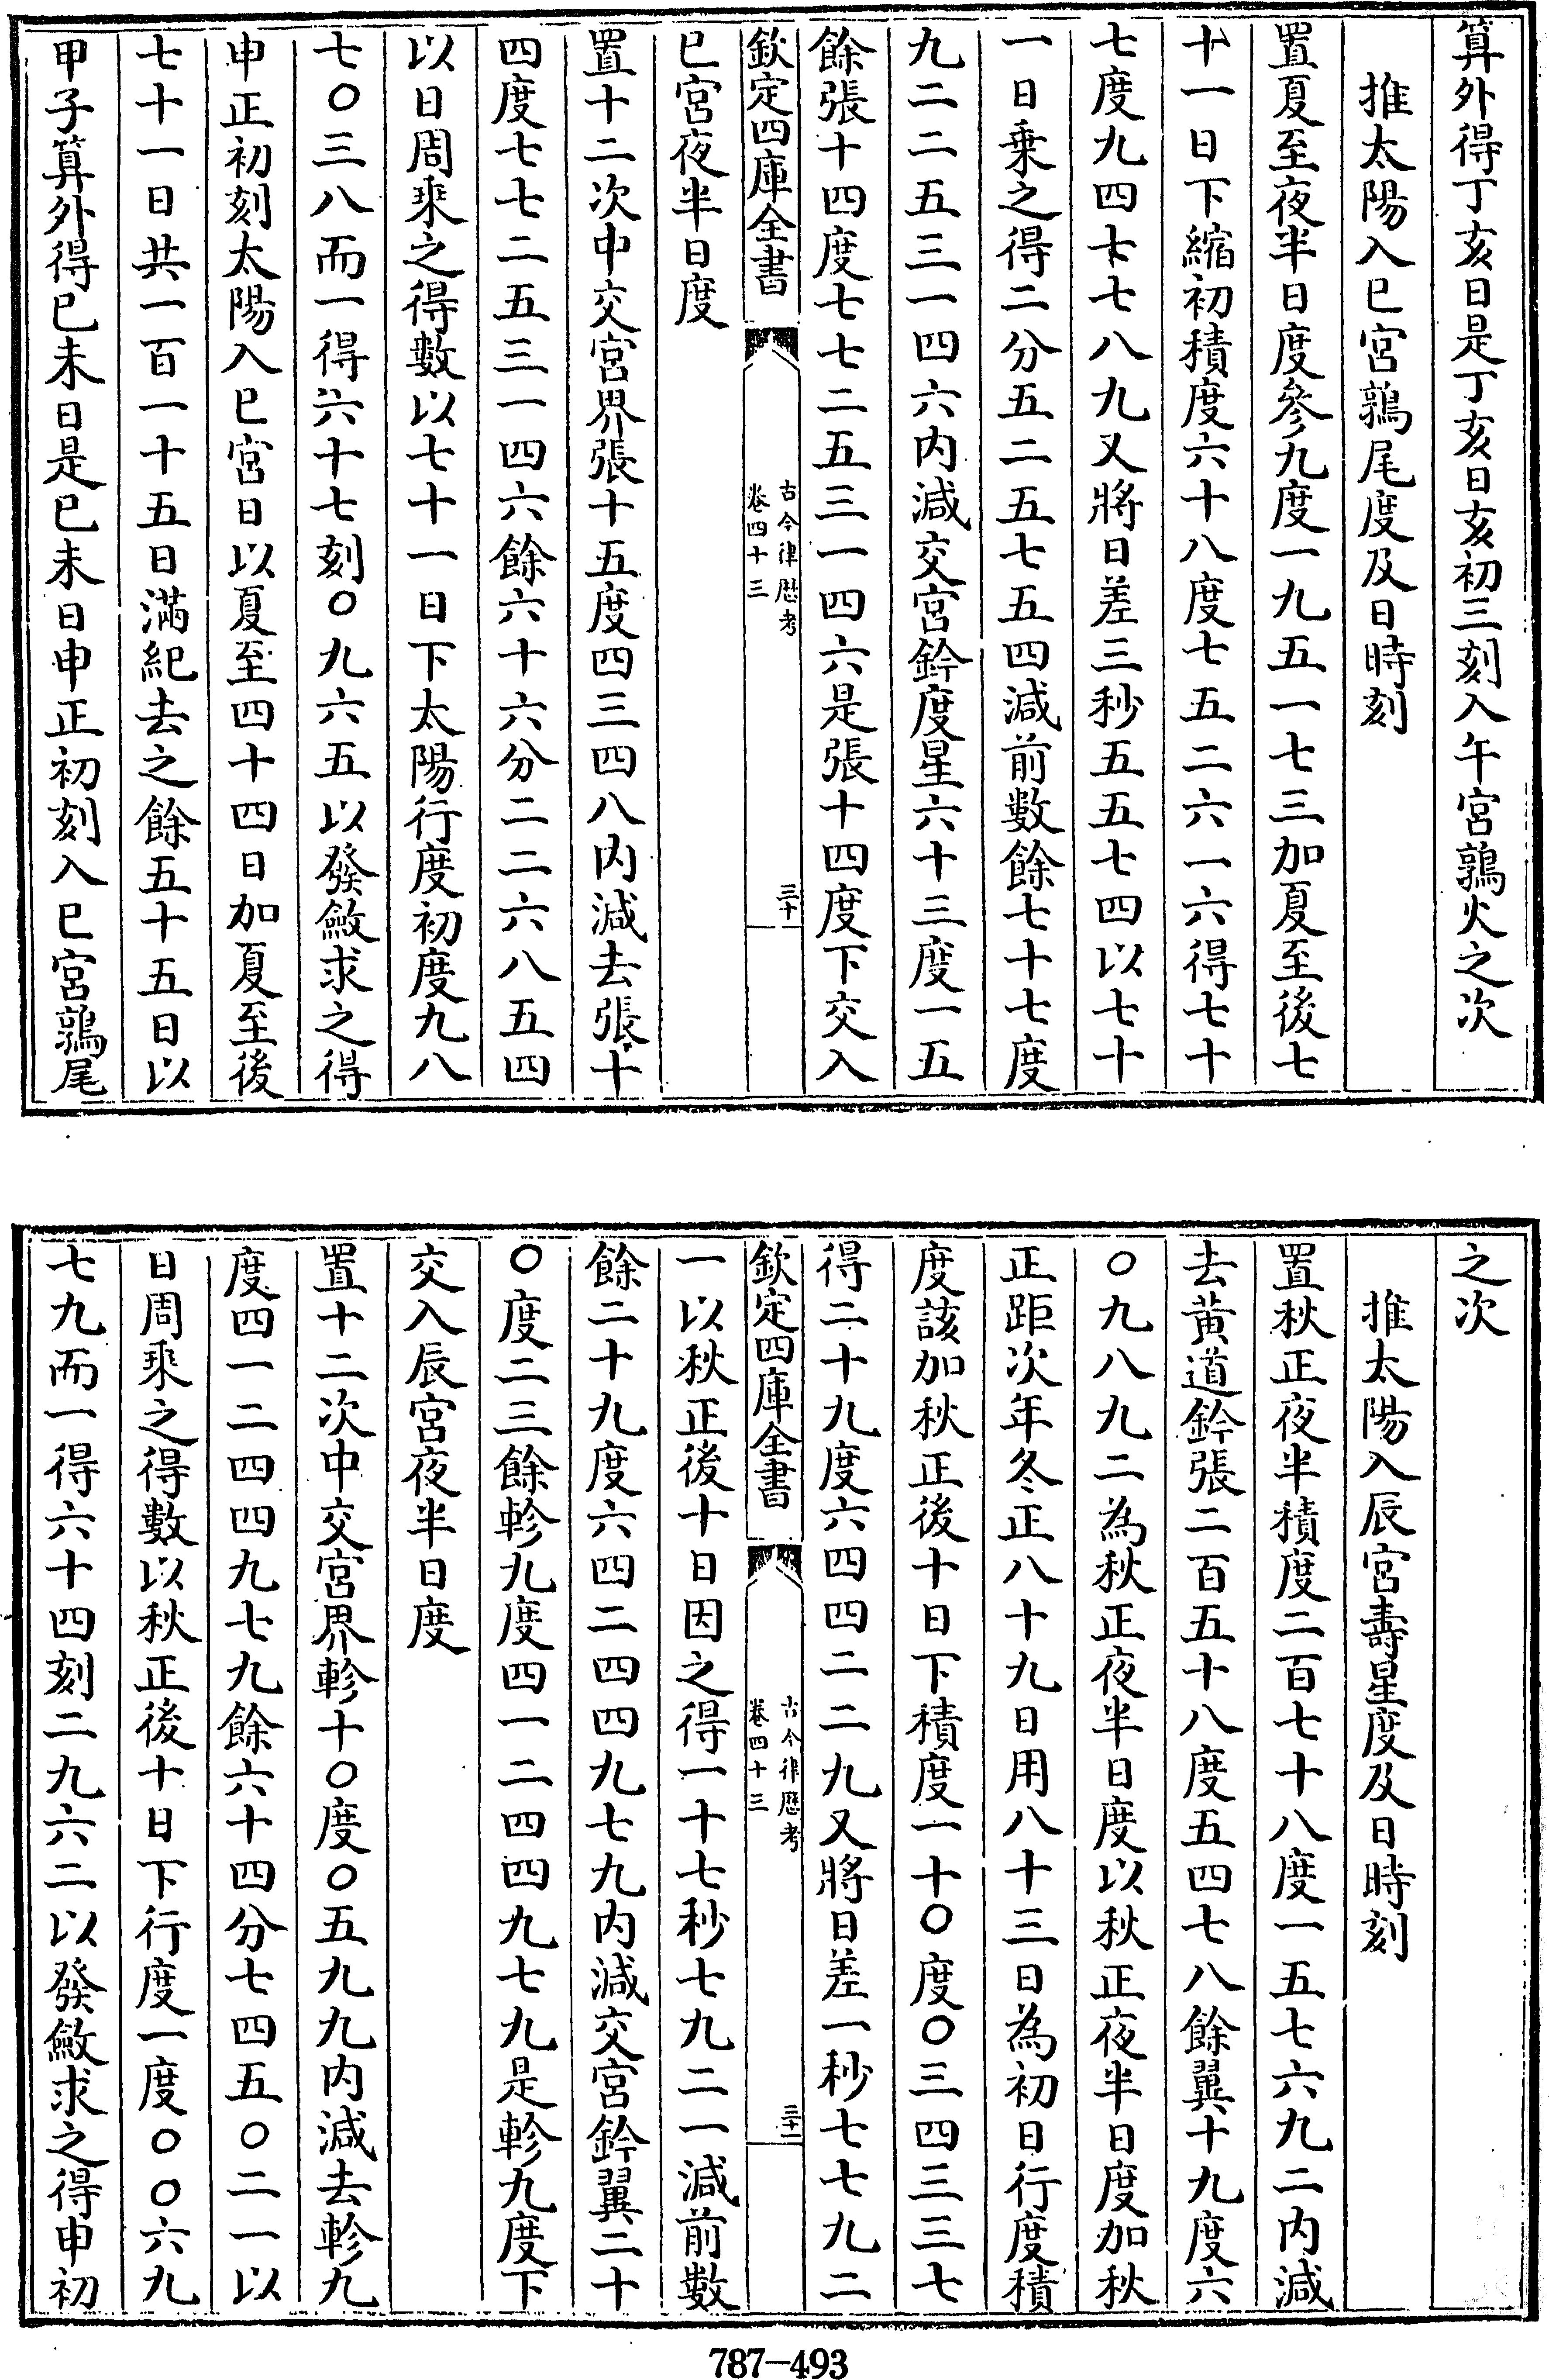 算外得丁亥日是丁亥日亥初三刻入午宮鶉火之次
推太陽入巳宮鶉尾度及日時刻
置夏至夜半日度參九度一九五一七三加夏至後七
十一日下縮初積度六十八度七五二六一六得七十
七度九四七七八九又將日差三秒五五七四以七十
一日乗之得二分五二五七五四減前數餘七十七度
九二二五三一四六内減交宮鈐度星六十三度一五
餘張十四度七七二五三一四六是張十四度下交入
欽定四庫全書
古今律厯考
卷四十三
三十
巳宮夜半日度
置十二次中交宮界張十五度四三四八内減去張十
四度七七二五三一四六餘六十六分二二六八五四
以日周乘之得數以七十一日下太陽行度初度九八
七〇三八而一得六十七刻〇九六五以發斂求之得
申正初刻太陽入巳宮日以夏至四十四日加夏至後
七十一日共一百一十五日滿紀去之餘五十五日以
甲子算外得己未日是己未日申正初刻入巳宮鶉尾
之次
推太陽入辰宮壽星度及日時刻
置秋正夜半積度二百七十八度一五七六九二内減
去黄道鈐張二百五十八度五四七八餘翼十九度六
〇九八九二為秋正夜半日度以秋正夜半日度加秋
正距次年冬正八十九日用八十三日為初日行度積
度該加秋正後十日下積度一十〇度〇三四三三七
得二十九度六四四二二九又將日差一秒七七九二
欽定四庫全書
古今律厯考
卷四十三
三十一
一以秋正後十日因之得一十七秒七九二一減前數
餘二十九度六四二四四九七九内減交宮鈐翼二十
〇度二三餘軫九度四一二四四九七九是軫九度下
交入辰宮夜半日度
置十二次中交宮界軫十〇度〇五九九内減去軫九
度四一二四四九七九餘六十四分七四五〇二一以
日周乘之得數以秋正後十日下行度一度〇〇六九
七九而一得六十四刻二九六二以發斂求之得申初
787-493